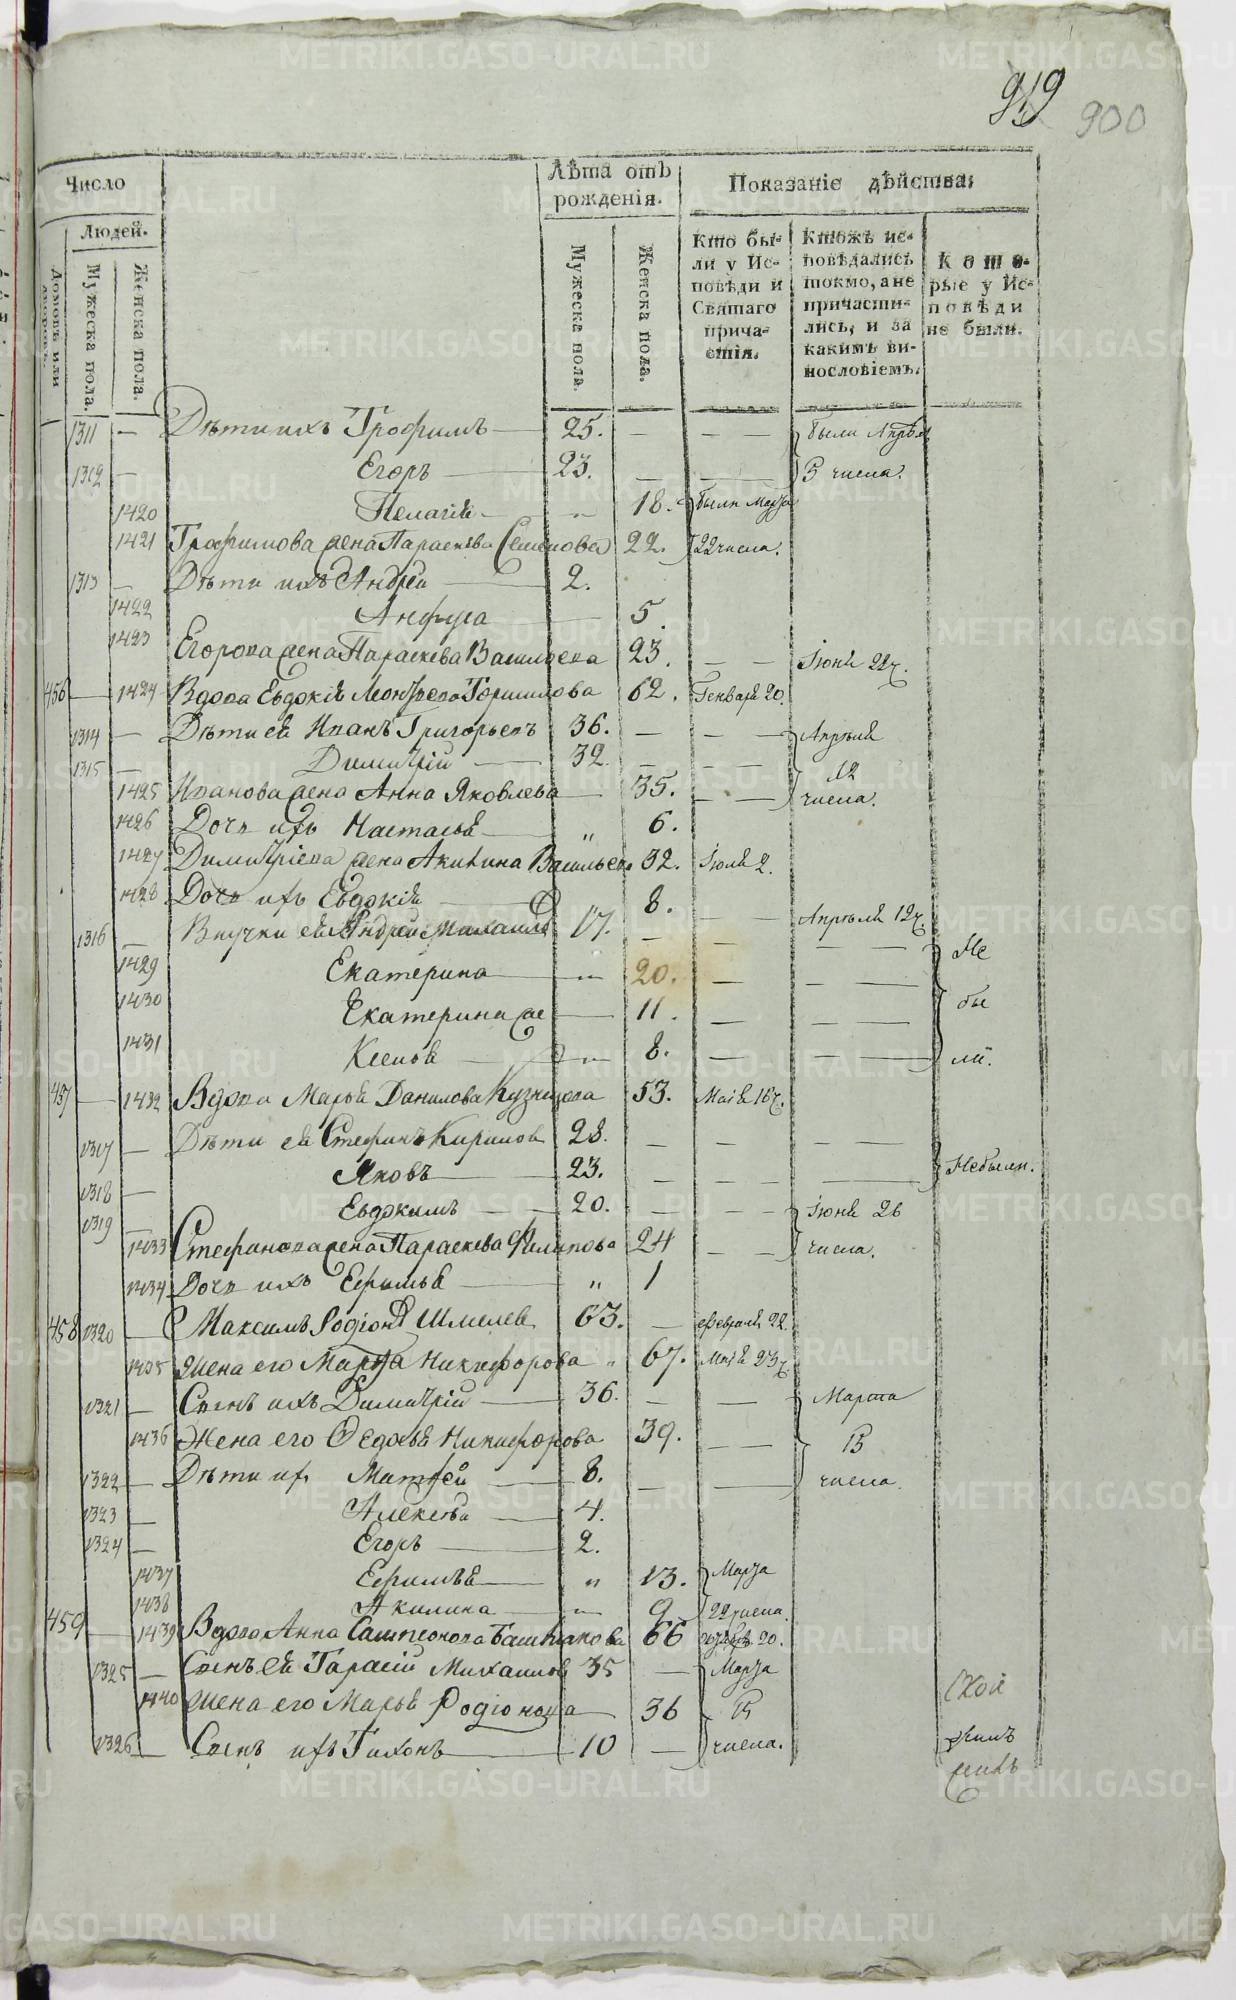 919 900
Число
Людей.
Домовъ или дворовъ.
Мужеска пола.
Женска пола.
Лѣта отъ рожденія.
Мужеска пола.
Женска пола.
Показаніе дѣйства:
Кто бы-
ли у Ис-
повѣди и
Святаго
прича-
стія.
Ктожъ ис-
повѣдались
токмо, а не
причасти-
лись, и за
какимъ ви-
нословіемъ.
Кото-
рые у Ис-
повѣди
не были.
1311 — Дѣти ихъ Трофимъ — 25. — — — были Апрѣл
1312 — Егоръ — 23. — — — числа.
1420 Пелагія — " 18. были Марта
1421 Трофимова жена Параскева Семенова 22. 22 числа.
1313 — Дѣти ихъ Андрей — 2.
1422 Анфуса — 5.
1423 Егорова жена Параскева Васильева 23. — — Іюня 22 ч.
456 — 1424 Вдова Евдокія Леонтьева 62. Генваря 20.
1314 — Дѣти ея Иванъ Григорьевъ 36. — — — Апрѣля
1315 — Димитрій — 32. — — — 12
1425 Иванова жена Анна Яковлева — 35. — — числа.
1426 Дочь ихъ Настасья — " 6.
1427 Димитріева жена Акилина Васильева 32. Іюля 2.
1428 Дочь ихъ Евдокія — 8. — — Апрѣля 12 ч
1316 — Внучки ея Андрей Михаиловъ 17. — — — — Не
1429 Екатерина — " 20. — — —
1430 Екатерина же — 11. — — — бы
1431 Ксенія — " 8. — — — ли.
457 — 1432 Вдова Марья Данилова Кузнецова 53. Маія 16 ч.
1317 — Дѣти ея Стефанъ Кириловъ 28. — — — —
1318 — Яковъ — 23. — — — — Небыли.
1319 — Евдокимъ — 20. — — — Іюня 26
1433 Стефанова жена Параскева Филипова 24 — — числа.
1434 Дочь ихъ Ефимья — " 1
458 1320 — Максимъ Родіоновъ Шмелев 63. — Февраля 22.
1435 Жена его Марфа Никифорова " 67. Маія 23 ч
1321 — Сынъ ихъ Димитрій — 36. — — — Марта
1436 Жена его Федосья Никифорова 39. — —
1322 — Дѣти ихъ Матфей — 8. — — числа.
1323 — Алексѣй — 4.
1324 — Егоръ — 2.
1437 Ефимья — " 13. Марта
1438 Акилина — " 9 22 числа.
459 — 1439 Вдова Анна Сампсонова Башмакова 66 20.
1325 — Сынъ ея Тарасій Михаиловъ 35 — Марта
1440 Жена его Марья Родіонова — 36
1326 — Сынъ ихъ Тихонъ — 10 — числа.